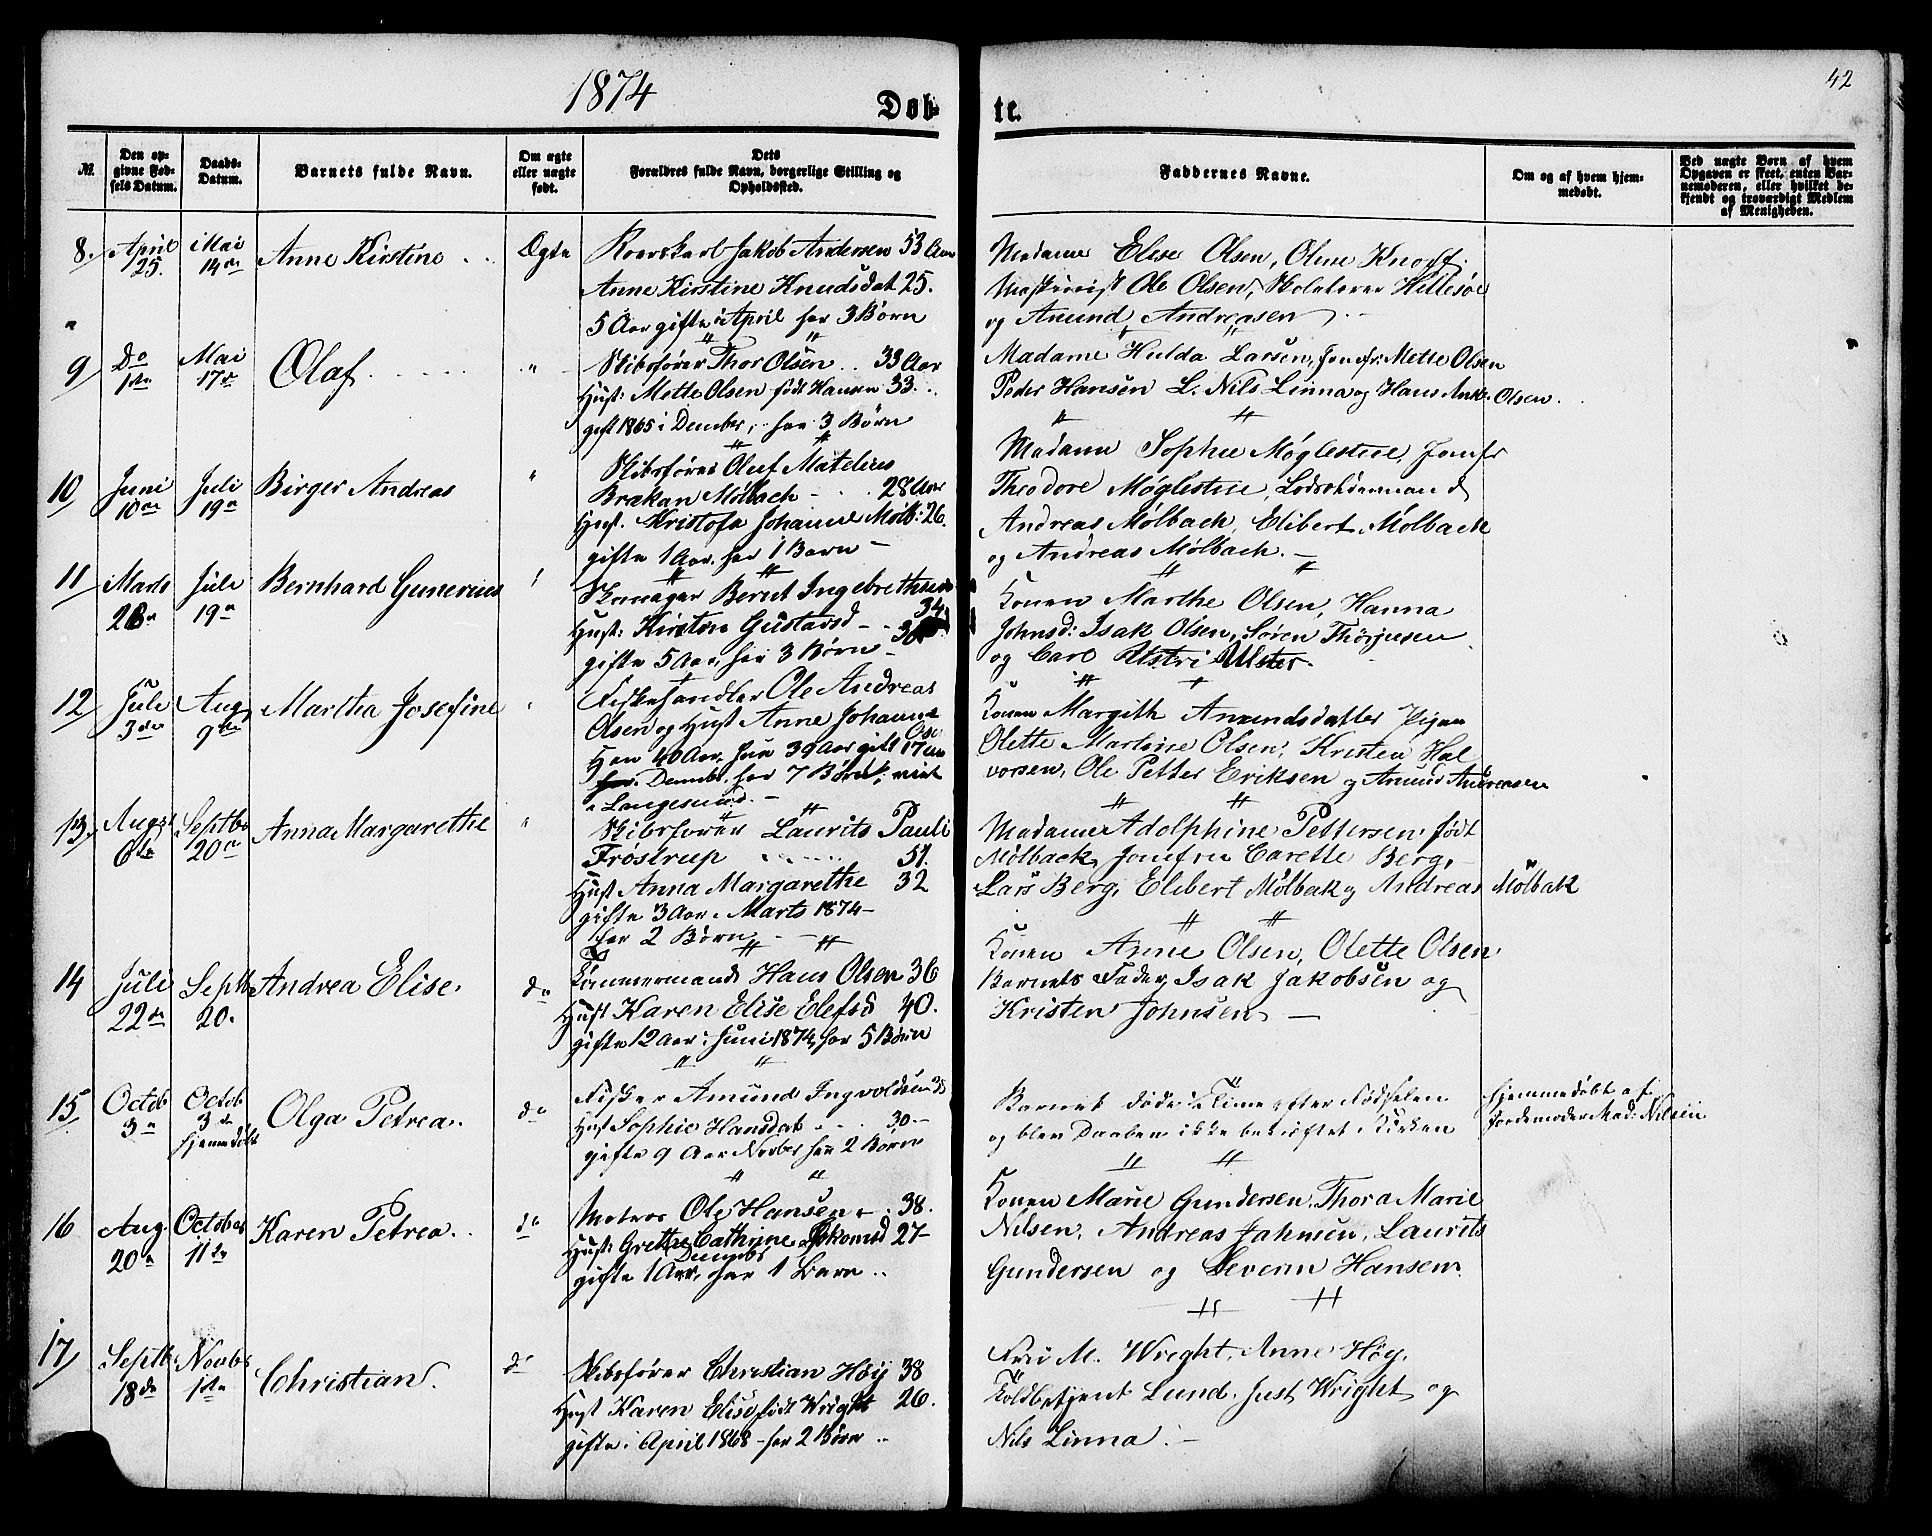 1874
42
Døb-
te.
№.
Den op-
givne Fød-
sels Datum.
Daabs-
Datum.
Barnets fulde Navn.
Om ægte
eller uægte
født.
Dets
Forældres fulde Navn, borgerlige Stilling og
Opholdssted.
Faddernes Navne.
Om og af hvem hjem-
medøbt.
Ved uægte Børn af hvem
Opgaven er skeet, enten Bar-
nemoderen, eller hvilket be-
kjendt og troværdigt Medlem
af Menigheden.
8. April 25. Mai 14de Anne Kirstine Ægte
Jakob Andersen 53 Aar
Anne Kirstine Knudsdat 25.
5 Aar gifte i April har 3 Børn
Madame Elise Olsen, Oline Knoff.
Ole Olsen, Hillesøe
og Amund Andreasen
9 Do 1ste Mai 17de Olaf
Skibsfører Thor Olsen 33 Aar
Hust: Mette Olsen født Hansen 33.
gift 1865 i Dember, har 3 Børn
Madame Hulda Larsen, Jomfr: Mette Olsen
Peder Hansen L. Nils Linna og Hans Ank. Olsen.
10 Juni 10de Juli 19de Birger Andreas
Skibsfører Oluf Matelius
Brakan Mølbach 28 Aar
Hust. Kristofa Johanne Mølb: 26.
gifte 1 Aar, har 1 Barn
Madam Sophie Møglestue, Jomfr
Theodore Møglestue, Lodsoldermand
Andreas Mølbach, Elibert Mølback
og Andreas Mølbach.
11 Marts Juli 19de Bernhard Gunerius
Skomager Bernt Ingebrethsen 34
Hust: Kirstine Gustavsd
gifte 5 Aar, har 3 Børn
Konen Marthe Olsen, Hanna
Johnsd: Isak Olsen, Søren Thorjusen
og Carl Ulster.
12 Juli 3die Aug 9de Martha Josefine
Fiskehandler Ole Andreas
Olsen og Hust Anne Johanne
Han 40 Aar, hun 39 Aar gift 17
Dembr. har 7 Børn, viet
i Langesund.
Konen Margith Amundsdatter Pigen
Olette Martine Olsen, Kristen Hal
vorsen, Ole Petter Eriksen og Amund Andreasen
13. August 6te Septbr 20de Anna Margarethe
Skibsfører Laurits Pauli
Frøstrup 51.
Hust Anna Margarethe 32
gifte 3 Aar i Marts 1874
har 2 Børn
Madame Adolphine Pettersen, født
Mølback, Jomfru Carette Berg,
Lars Berg, Elibert Mølbak og Andreas Mølbak
14 Juli 22de Septb 20. Andrea Elise. do
Tømmermand Hans Olsen 36
Hust Karen Elise Elefsd 40.
gifte 12 Aar i Juni 1874, har 5 Børn
Konen Anne Olsen, Olette Olsen
Barnets Fader, Isak Jakobsen og
Kristen Johnsen
15 Octob 3de Octob 3de hjemmedøbt Olga Petrea. do
Fisker Amund Ingvoldsen 38
Hust Sophie Hansdat 30
gifte 9 Aar Novbr har 2 Børn
Barnet døde 1/2 Time efter Fødselen
og blev Daaben ikke bekræftet i Kirken
hjemmedøbt af
Jordemoder Mad: Nilsen
16 Aug 20de October 11te Karen Petrea. do
Matros Ole Hansen 38.
Hust: Grethe Cathrine 27
gifte 1 Aar, Dembr har 1 Barn
Konen Marie Gundersen, Thora Marie
Nilsen, Andreas Jahnsen, Laurits
Gundersen og Severin Hansen
17 Septb. 18de Novbr 1ste Christian. do
Skibsfører Christian Høy 38
Hust Karen Elise født Wright 26.
gifte i April 1868 har 2 Børn
Fru M. Wright, Anne Høy,
Toldbetjent Lund, Just Wright og
Nils Linna.